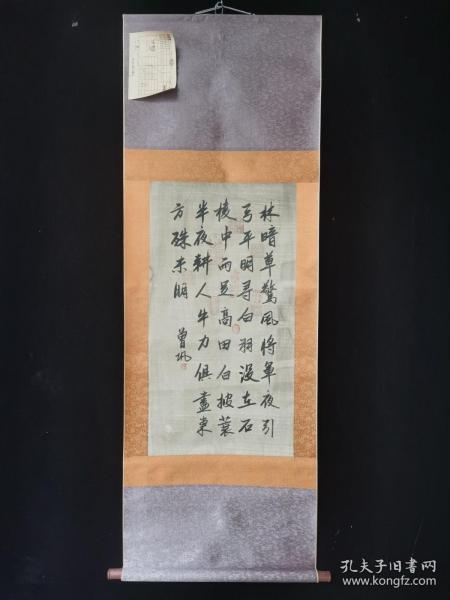 林暗草驚風將軍夜引
弓平明尋白羽沒在石
棱中雨足高田白披蓑
半夜耕人牛力俱盡東
方殊未明
曾巩
孔夫子旧书网
www.kongfz.com